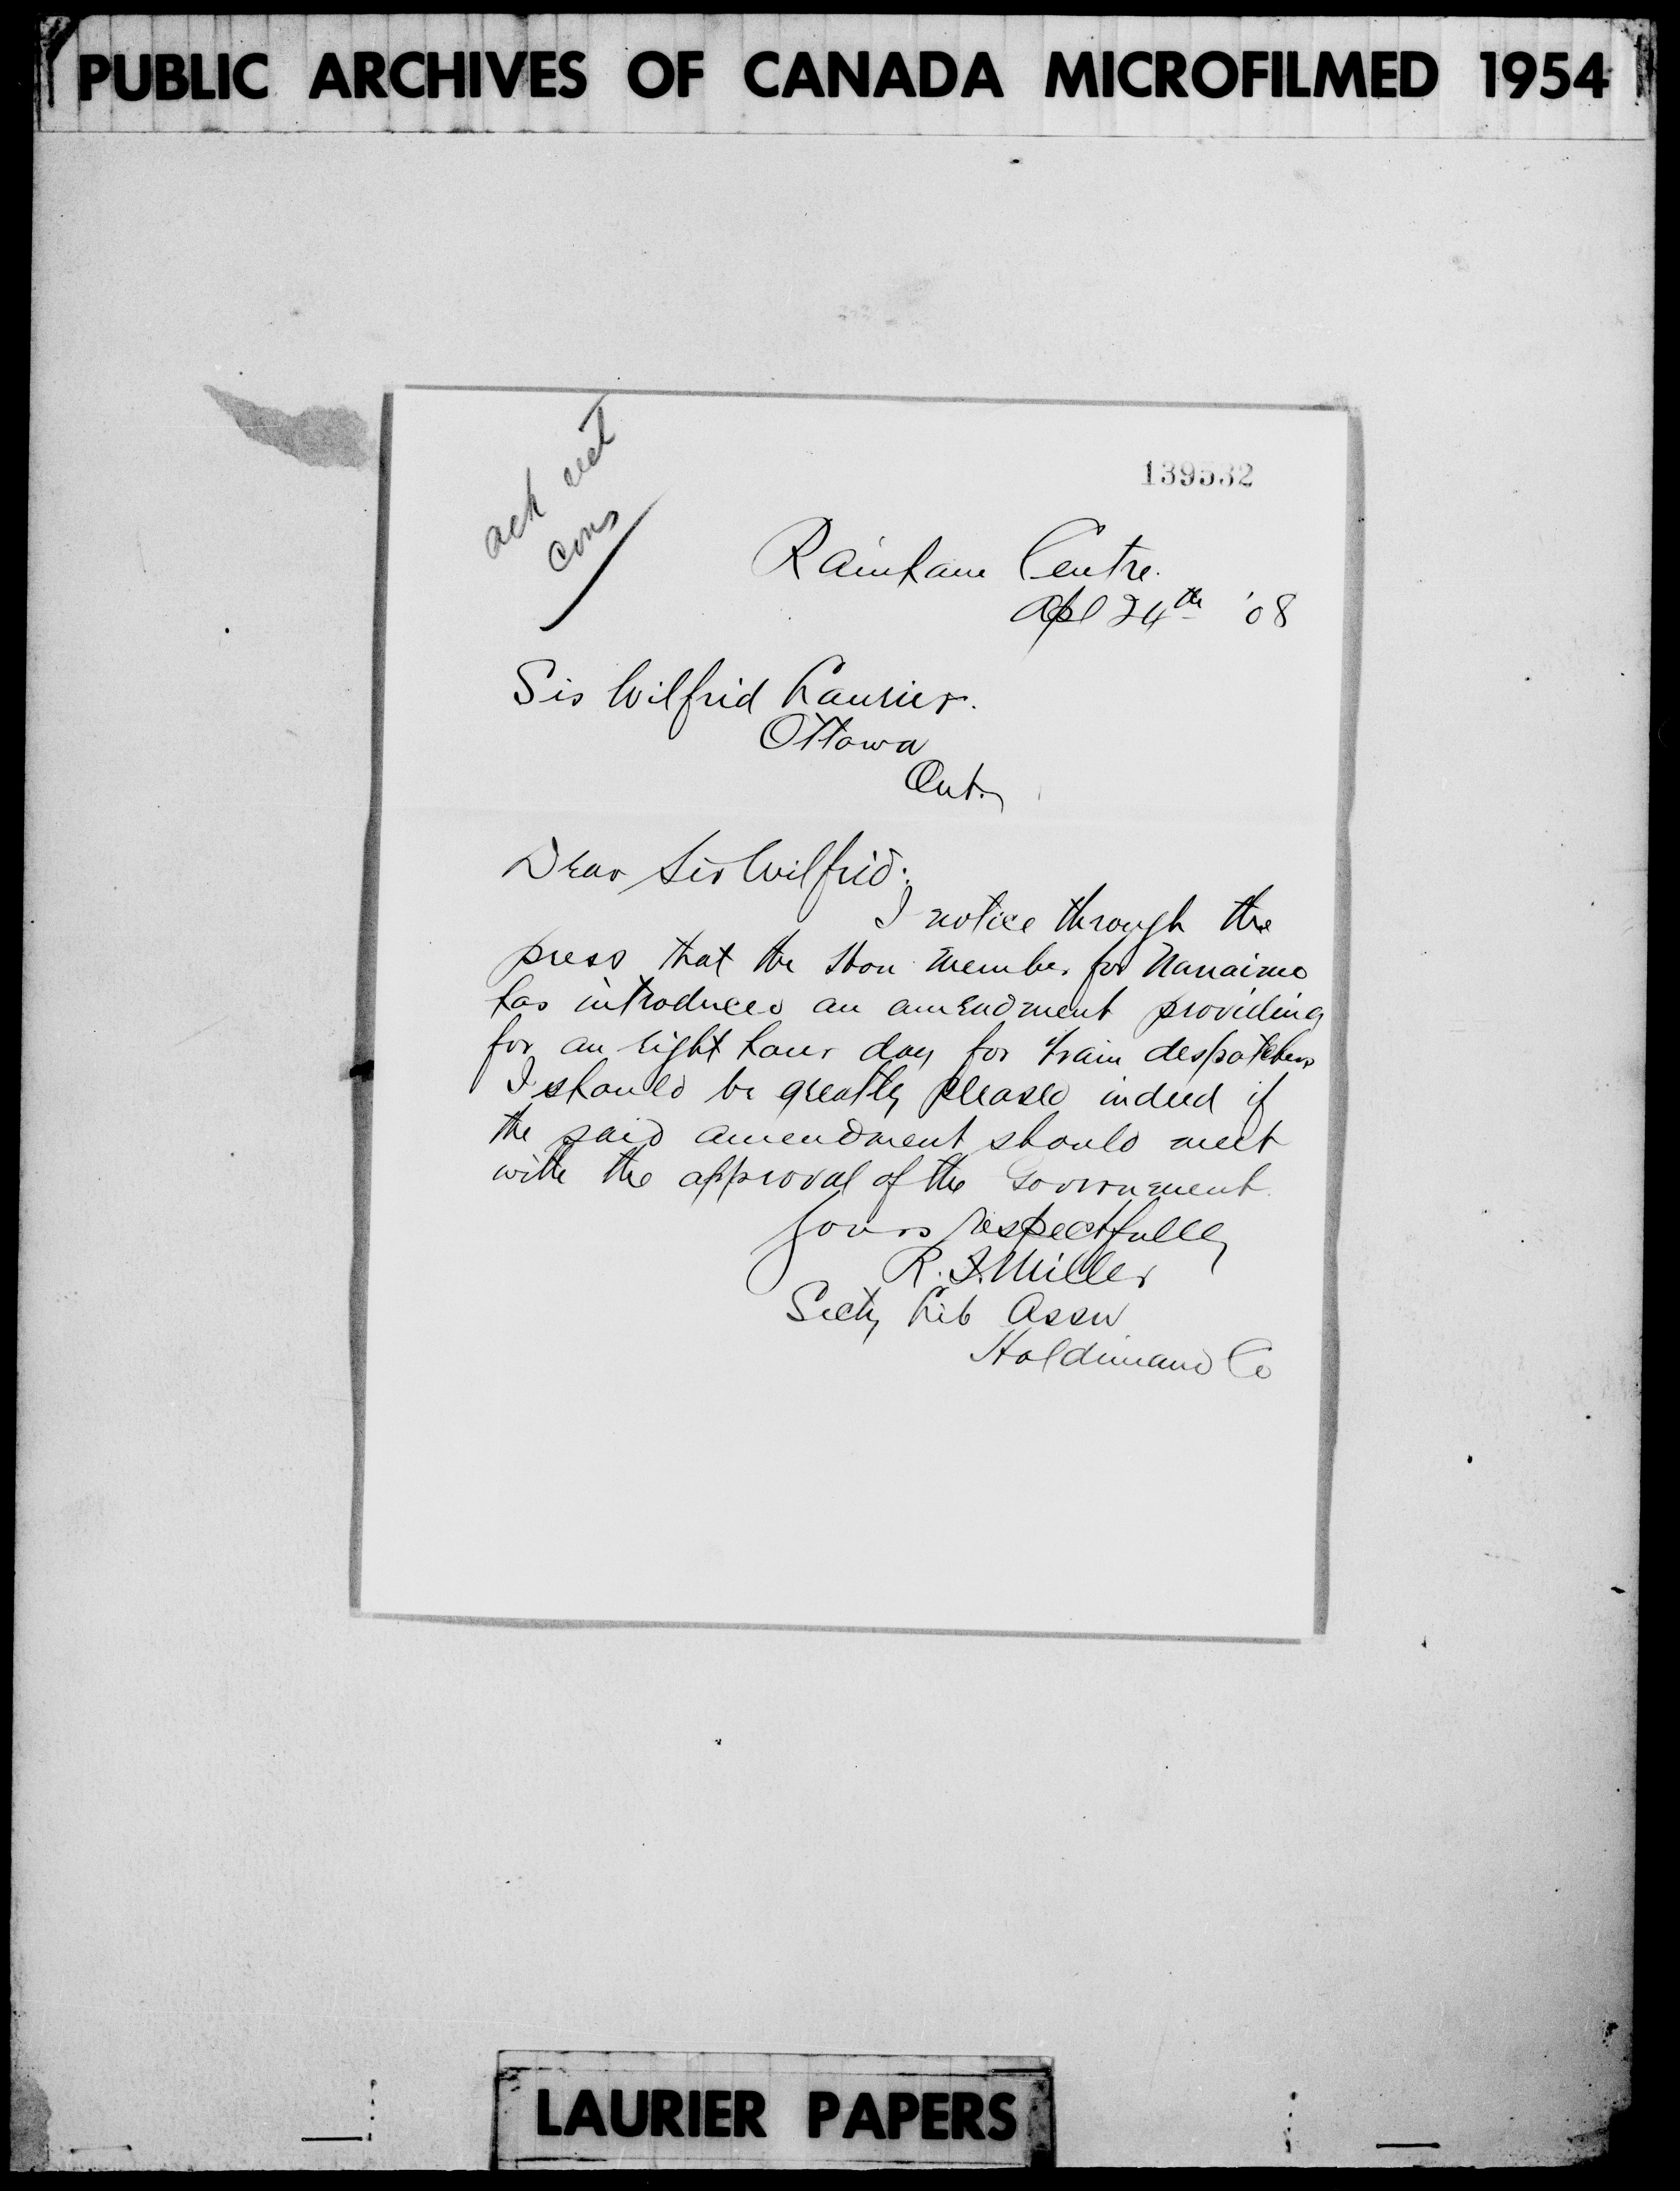 PUBLIC ARCHIVES OF CANADA MICROFILMED 1954
ack
cons
139532
Rainham Centre.
Apl 24th '08
Sir Wilfrid Laurier.
Ottawa
Ont.
Dear Sir Wilfrid:
I notice through the
press that the Hon member for Nanaimo
has introduced an amendment providing
for an eight hour day for train despatchers
I should be greatly pleased indeed if
the said amendment should meet
with the approval of the Government.
Yours respectfully
R. F. Miller
Secty Lib Assn
Haldimand Co
LAURIER PAPERS